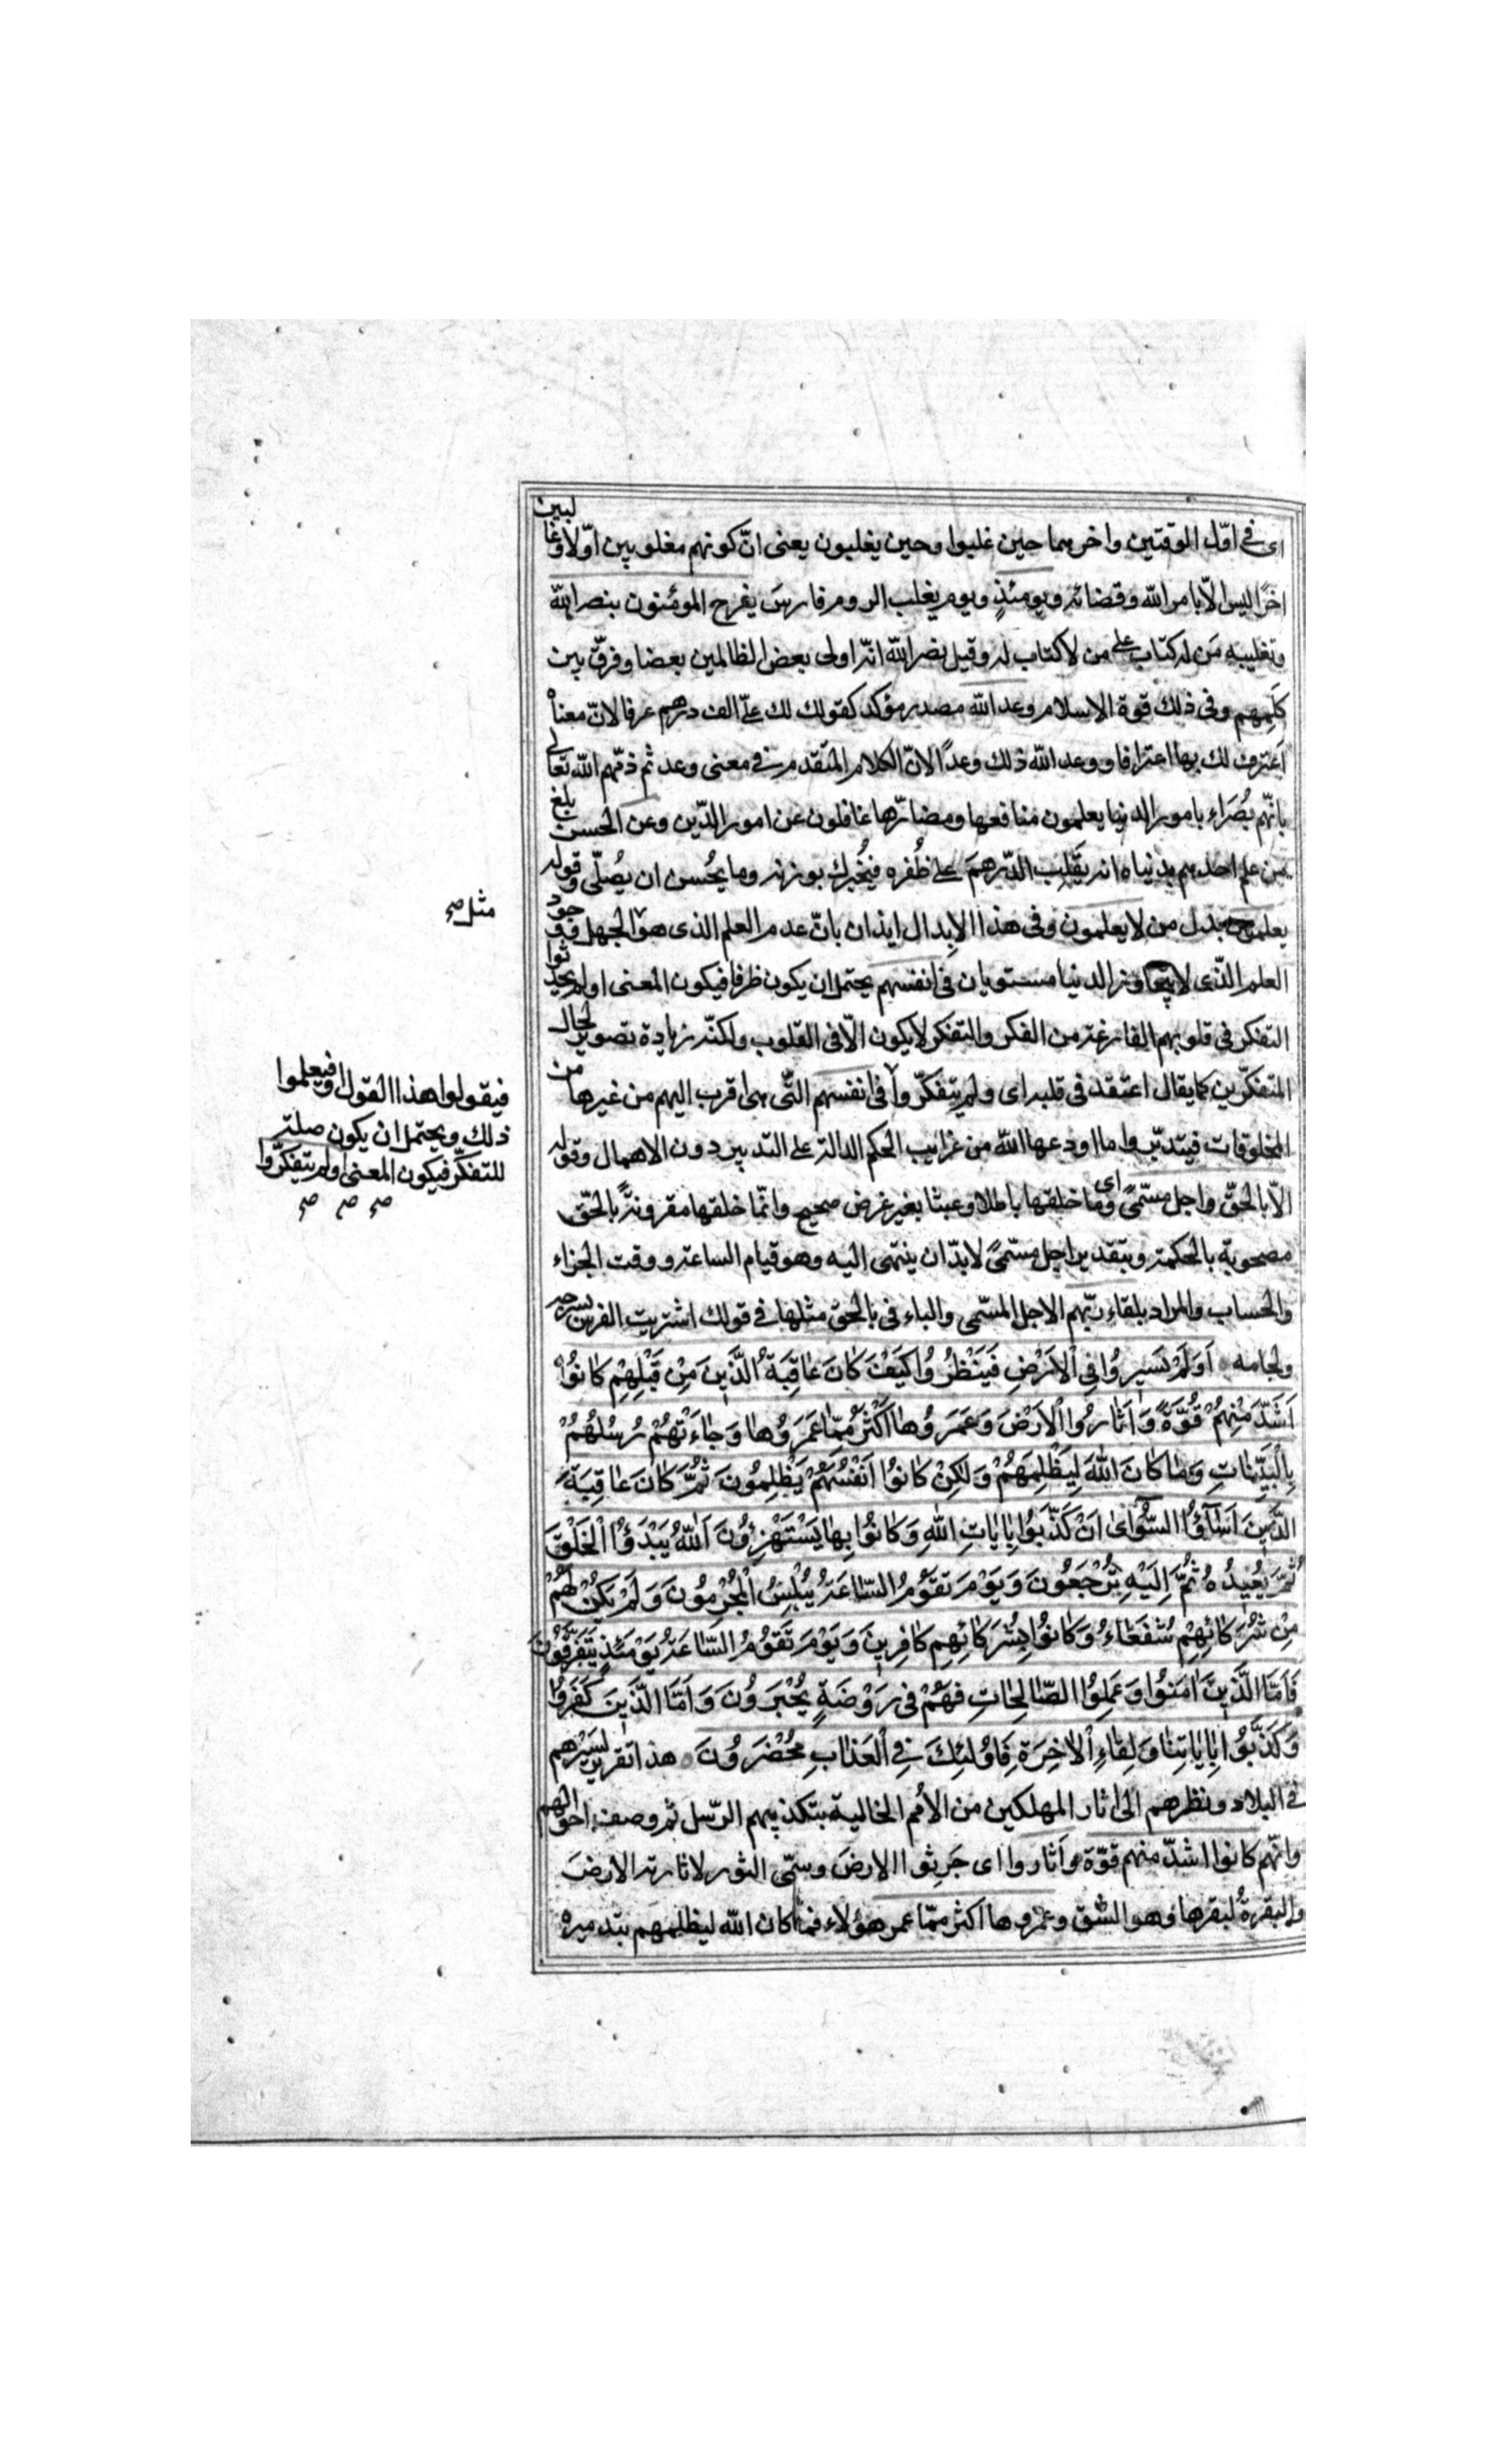 اى فى اوّل الوقتين واخرهما حين غلبوا وحين يغلبون يعنى انّ كونهم مغلوبين اوّلا وغالبين
اخرًا ليس الّا بامر الله وقضائه ويومئذٍ ويوم يغلب الروم فارسَ يفرح المؤمنون بنصر الله
وتغليبه مَن له كتاب على من لا كتاب له وقيل نصر الله انّه اولى بعض الظالمين بعضا وفرّق بين
كَلِمِهم وفى ذلك قوة الاسلام وعد الله مصدر مؤكد كقولك لك علىّ الف درهم عرفا لانّ معناه
اَعترف لك بها اعترافا ووعد الله ذلك وعدًا لانّ الكلام المتقدم فى معنى وعد ثم ذمّهم الله تعالى
بانّهم بُصَراء بامور الدنيا يعلمون منافعها ومضارّها غافلون عن امور الدّين وعن الحسن بلغ
من علم احدهم بدنياه انه يقلب الدّرهمَ على ظُفره فيُخبرك بوزنه وما يُحسن ان يُصلّى وقوله
يعلمون بدل من لا يعلمون وفى هذا الابدال ايذان بانّ عدم العلم الذى هو الجهل ووجود
العلم الّذى لا يتجاوز الدنيا مستويان فى انفسهم يحتمل ان يكون ظرفا فيكون المعنى اولم يحدثوا
التفكر فى قلوبهم الفارغة من الفكر والتفكر لا يكون الّا فى القلوب ولكنّه زيادة تصوير لحال
المتفكّرين كما يقال اعتقد فى قلبه اى ولم يتفكّروا فى انفسهم الّتى هى اقرب اليهم من غيرها من
المخلوقات فيتدبّروا ما اودعها الله من غرايب الحكم الدالة على التدبير دون الاهمال وقوله
الّا بالحقّ واجل مسّمى اى وما خلقها باطلا وعبثا بغير غرض صحيح وانّما خلقها مقرونةً بالحقّ
مصحوبة بالحكمة وبتقدير اجل مسّمى لا بدّ ان ينتهى اليه وهو قيام الساعة ووقت الجزاء
والحساب والمراد بلقاء ربّهم الاجل المسّمى والباء فى بالحق مثلها فى قولك اشتريت الفرس بسرجه
ولجامه اَوَلَمْ يَسيرُوا فِى الْاَرْضِ فَيَنْظُرُوا كَيْفَ كانَ عاقِبَةُ الَّذينَ مِنْ قَبْلِهِمْ كانُوا
اَشَدَّ مِنْهُمْ قُوَّةً وَاَثارُوا الْاَرْضَ وَعَمَرُوها اَكْثَرَ مِمّا عَمَرُوها وَجاءَتْهُمْ رُسُلُهُمْ
بِالْبَيِّناتِ وَما كانَ اللهُ لِيَظْلِمَهُمْ وَلكِنْ كانُوا اَنْفُسَهُمْ يَظْلِمُونَ ثُمَّ كانَ عاقِبَةَ
الَّذينَ اَساؤُا السُّواى اَنْ كَذَّبُوا بِاياتِ اللهِ وَكانُوا بِها يَسْتَهْزِؤُنَ اَللهُ يَبْدَؤُا الْخَلْقَ
ثُمَّ يُعيدُهُ ثُمَّ اِلَيْهِ تُرْجَعُونَ وَيَوْمَ تَقُومُ السّاعَةُ يُبْلِسُ الْمُجْرِمُونَ وَلَمْ يَكُنْ لَهُمْ
مِنْ شُرَكائِهِمْ شُفَعاءُ وَكانُوا بِشُرَكائِهِمْ كافِرينَ وَيَوْمَ تَقُومُ السّاعَةُ يَوْمَئِذٍ يَتَفَرَّقُونَ
فَاَمَّا الَّذينَ امَنُوا وَعَمِلُوا الصّالِحاتِ فَهُمْ فى رَوْضَةٍ يُحْبَرُونَ وَاَمَّا الَّذينَ كَفَرُوا
وَكَذَّبُوا بِاياتِنا وَلِقاءِ الْاخِرَةِ فَاُولئِكَ فِى الْعَذابِ مُحْضَرُونَ هذا تقرير لسَيْرهم
فى البلاد ونظرهم الى اثار المهلكين من الاُمم الخالية بتكذيبهم الرّسل ثم وصف احوالهم
وانّهم كانوا اشدّ منهم قوّة واَثاروا اى حَرثوا الارضَ وسمّى الثور لاثارته الارضَ
والبقرةُ لبقرها وهو الشق وعمروها اكثر ممّا عمر هؤلاء فما كان الله ليظلمهم بتدميره
مثل صح
فيقولوا هذا القول او فيعلموا
ذلك ويحتمل ان يكون صلة
للتفكّر فيكون المعنى اولم يتفكّروا
صح صح صح